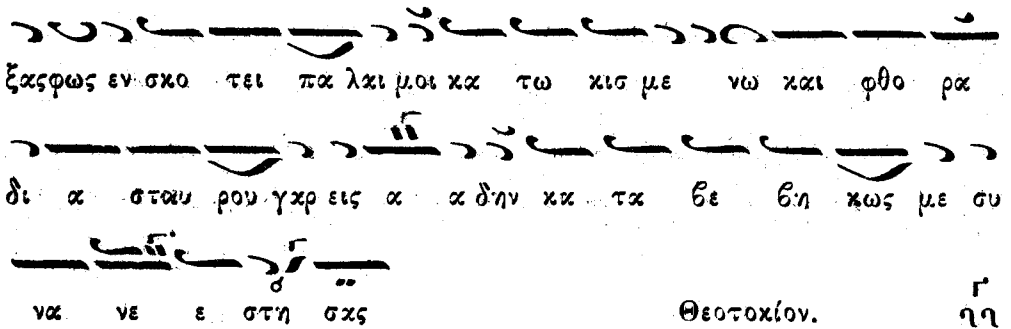 ξας φως εν σκο τει πα λαι μοι κα τω κισ με νω και φθο ρα
δι α σταυ ρου γαρ εις α α δην κα τα βε βη κως με συ
να νε ε στη σας Θεοτοκίον.